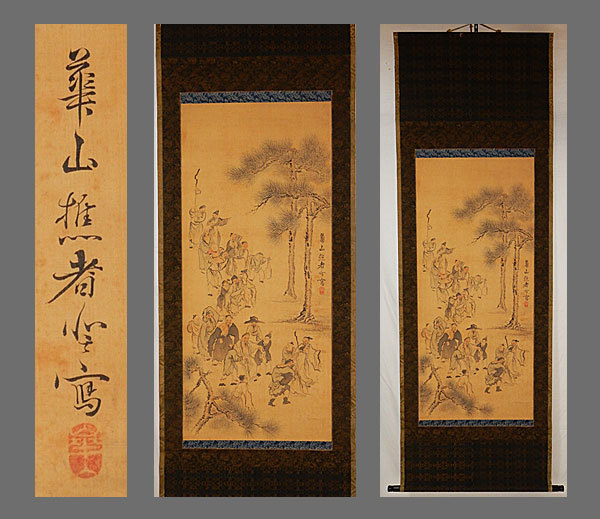 華山樵者登寫
華山樵者登寫
華山樵者登寫